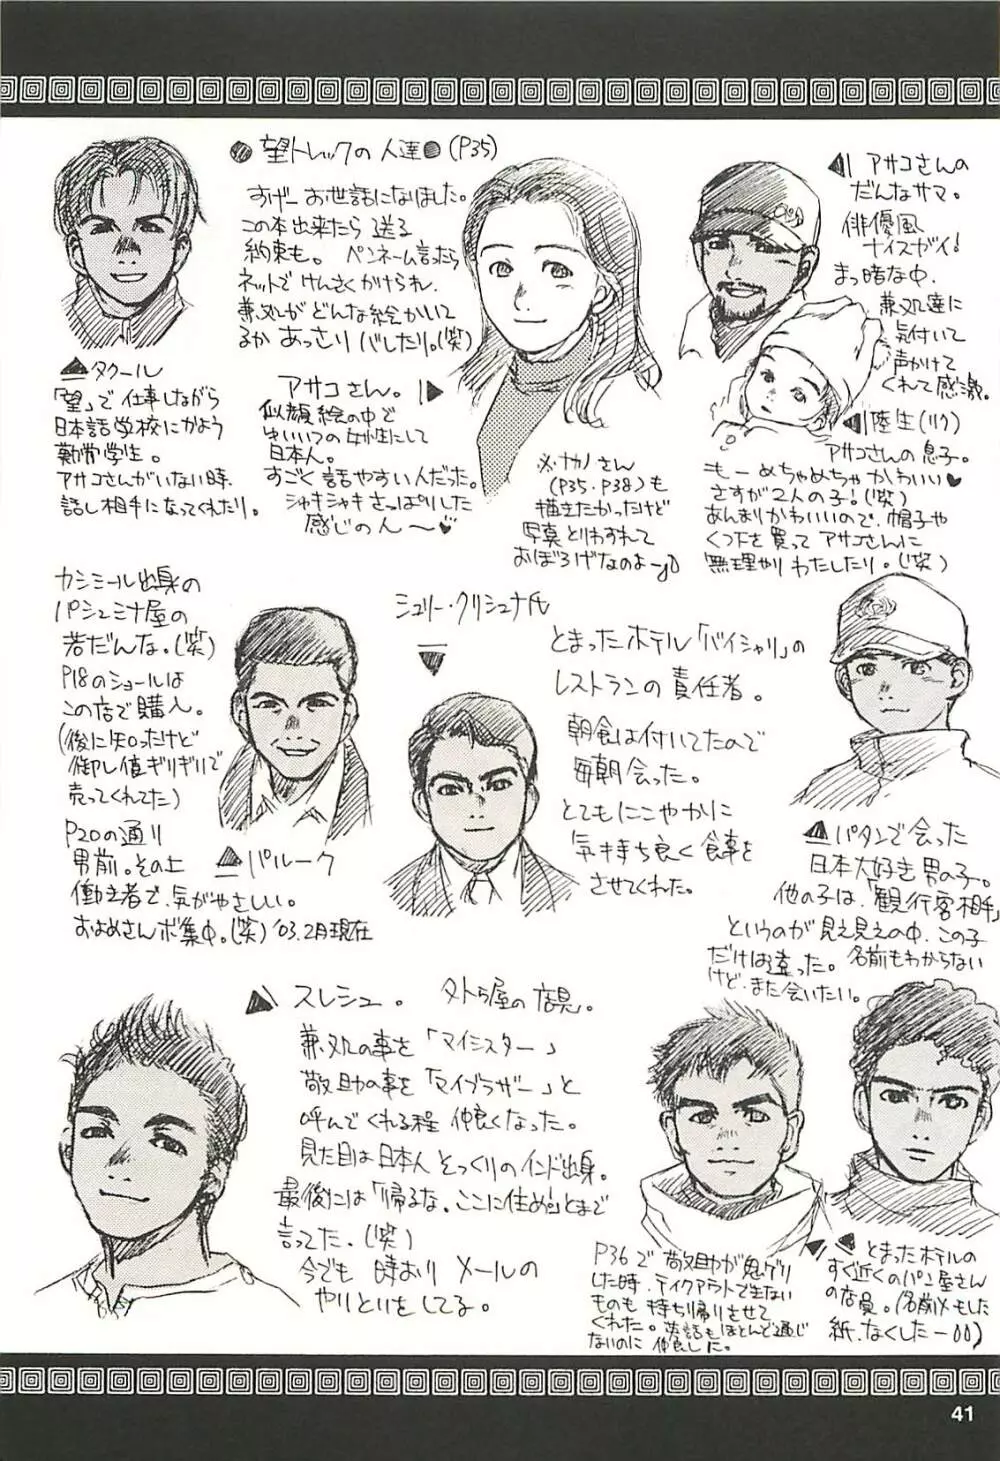 ●望トレックの人達●(P35)
すげーお世話になりました。
この本出来たら送る
約束も。ペンネーム言ったら
ネットでけんさくかけられ、
兼処がどんな絵かいて
るかあっさりバレたり。(笑)
▲タクール
「望」で仕事しながら
日本語学校にかよう
勤労学生。
アサコさんがいない時、
話し相手になってくれたり。
アサコさん。▶
似顔絵の中で
ゆいいつの女性にして
日本人。
すごく話やすい人だった。
シャキシャキさっぱりした
感じのん〜♥
◀アサコさんの
だんなサマ。
俳優風
ナイスガイ!
まっ暗な中、
兼処達に
気付いて
声かけて
くれて感激。
◀陸生(リク)
アサコさんの息子。
もーめちゃめちゃかわいい♥
さすが2人の子!(笑)
あんまりかわいいので、帽子や
くつ下を買ってアサコさんに
無理やりわたしたり。(笑)
※ナカノさん
(P35・P38)も
描きたかったけど
写真とりわすれて
おぼろげなのよー
カシミール出身の
パシュミナ屋の
若だんな。(笑)
P18のショールは
この店で購入。
(後に知ったけど
卸し値ギリギリで
売ってくれてた)
P20の通り
男前。その上
働き者で、気がやさしい。
およめさんボ集中。(笑)'03.2月現在
▲パルーク
シュリー・クリシュナ氏
▼
とまったホテル「バイシャリ」の
レストランの責任者。
朝食は付いてたので
毎朝会った。
とてもにこやかに
気持ち良く食事を
させてくれた。
▲パタンで会った
日本大好き男の子。
他の子は、「観行客相手」
というのが見え見えの中、この子
だけは違った。名前もわからない
けど、また会いたい。
▲スレシュ。タトゥ屋の店員。
兼処の事を「マイシスター」
敬助の事を「マイブラザー」と
呼んでくれる程仲良くなった。
見た目は日本人そっくりのインド出身。
最後には「帰るな。ここに住め」とまで
言ってた。(笑)
今でも時おりメールの
やりといをしてる。
P36で敬助が鬼ゲリ
した時、テイクアウトで生ない
ものも持ち帰りさせて
くれた。英語もほとんど通じ
ないのに仲良した。
とまったホテルの
すぐ近くのパン屋さん
の店員。(名前メモした
紙、なくしたー)
41